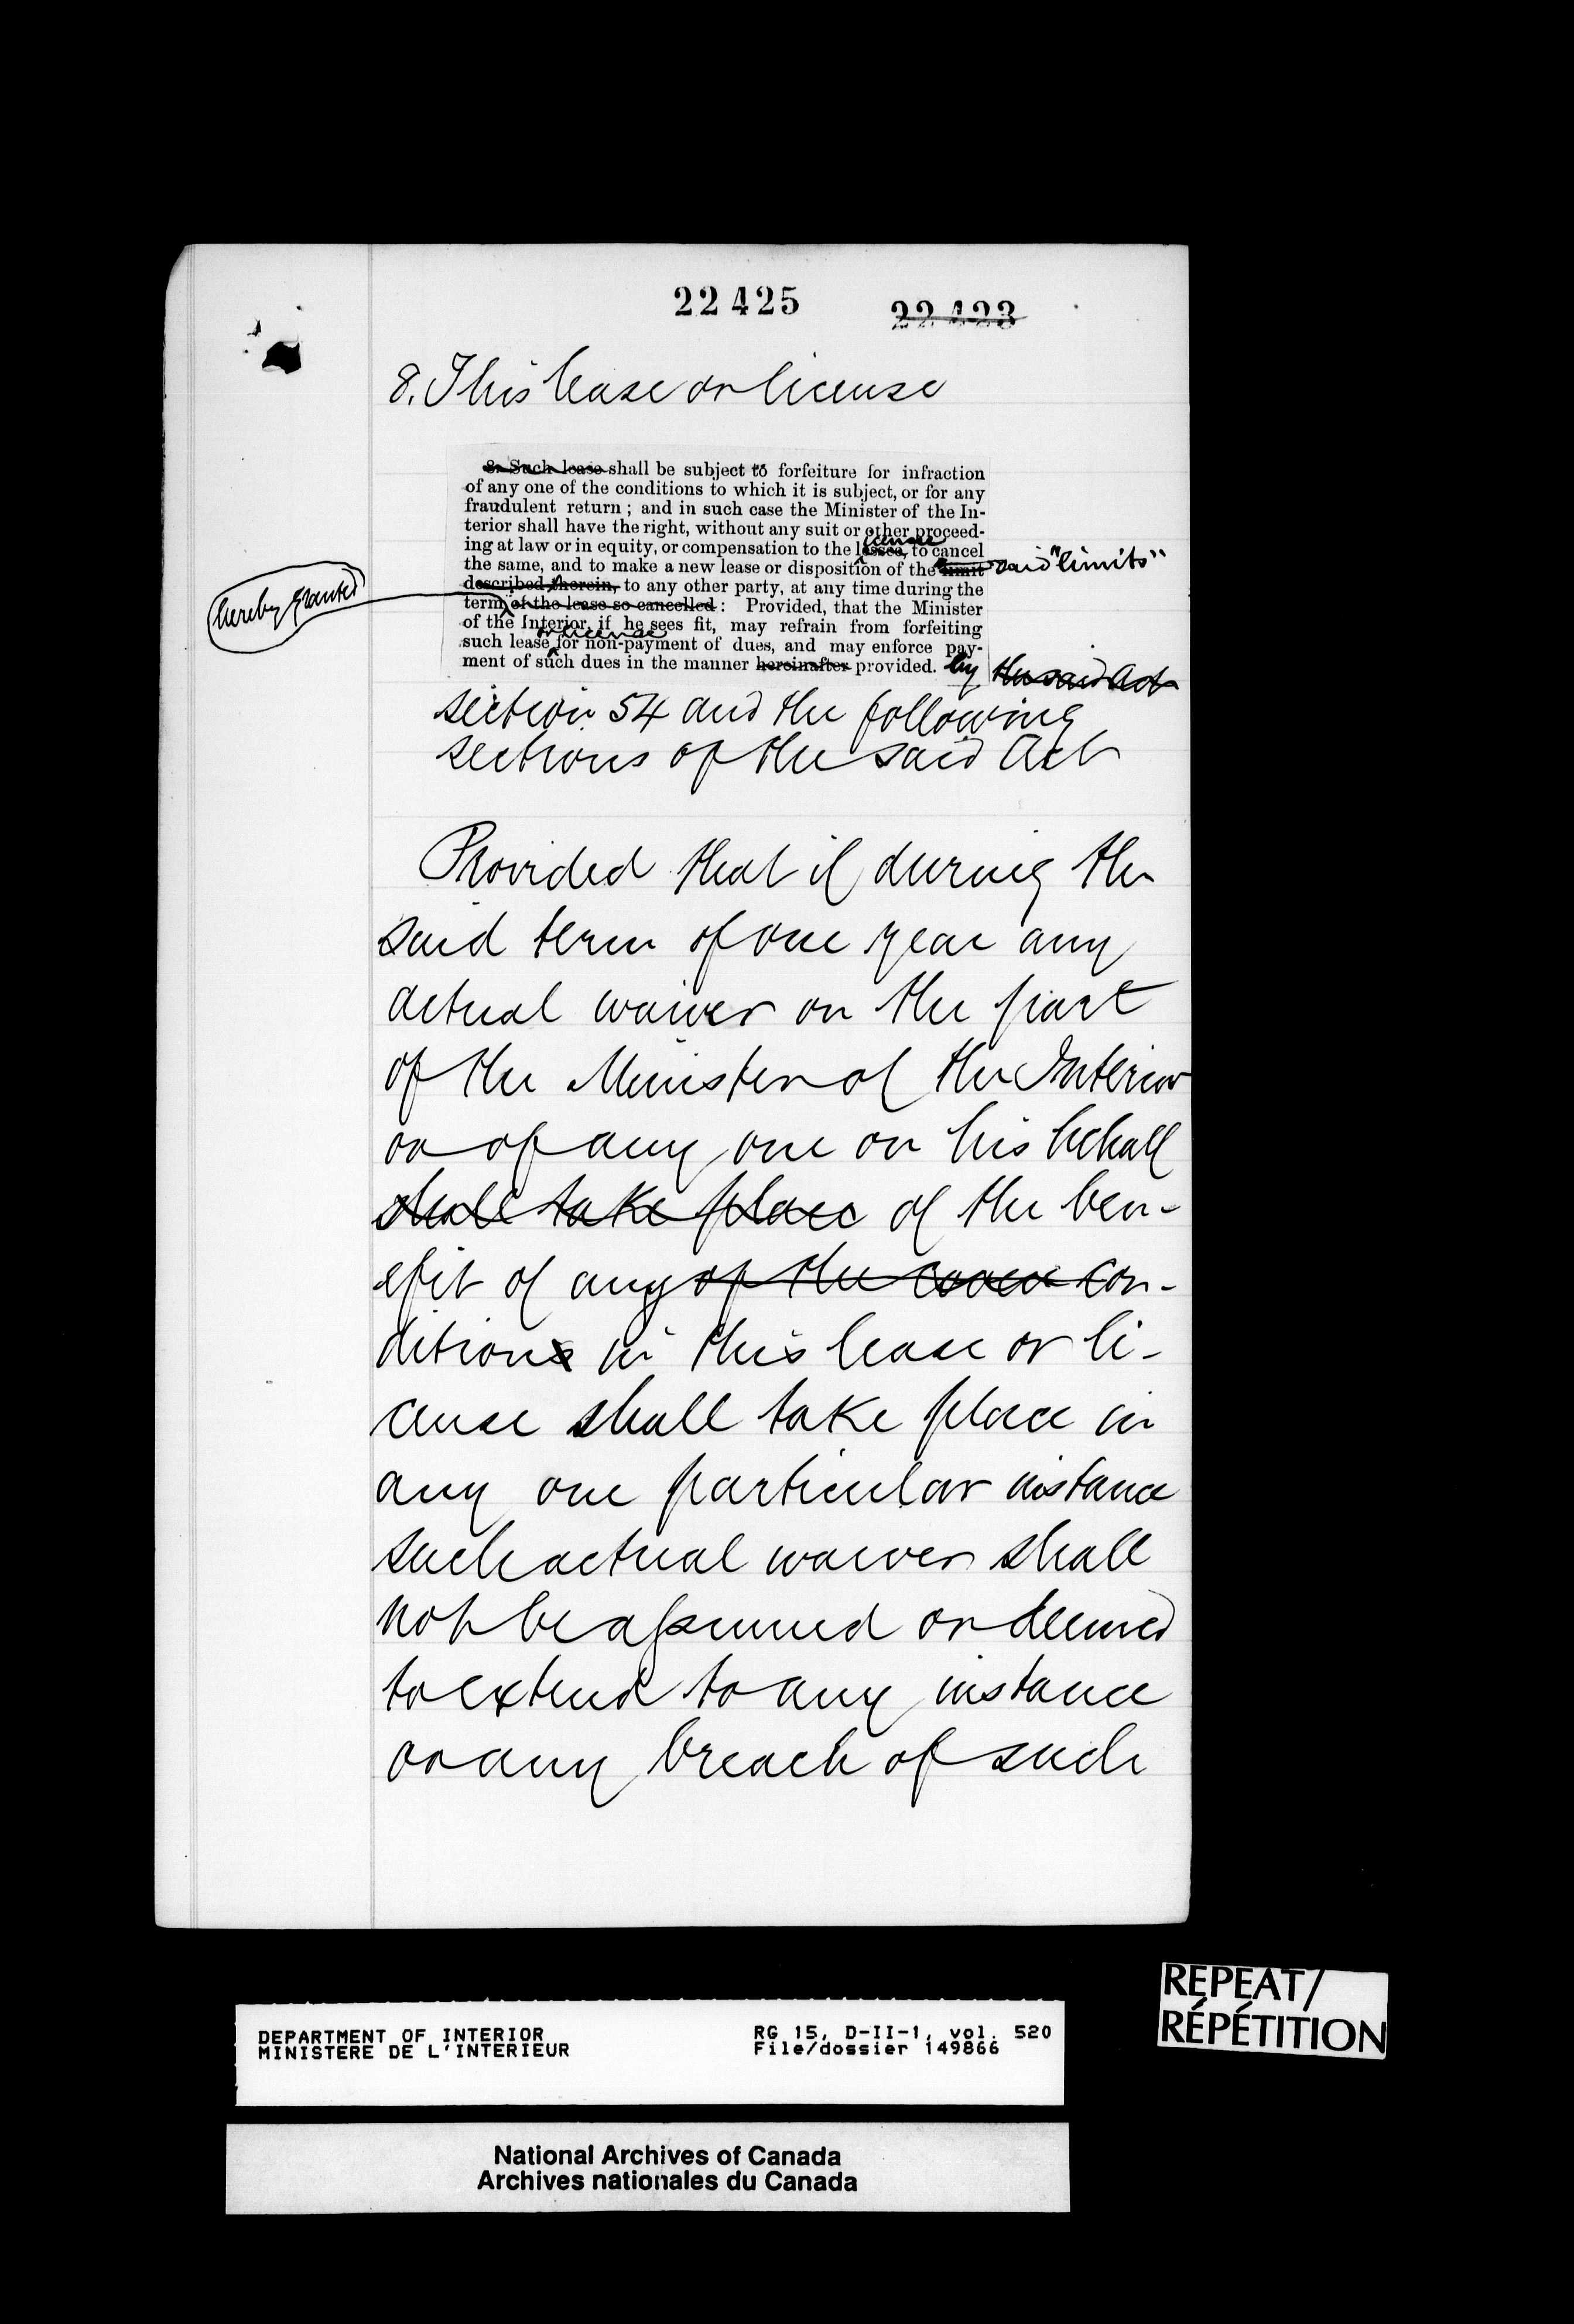 22425 22423
8. This lease or license
8. Such lease shall be subject to forfeiture for infraction
of any one of the conditions to which it is subject, or for any
fraudulent return ; and in such case the Minister of the In-
terior shall have the right, without any suit or other proceed-
icensee
ing at law or in equity, or compensation to the lessee, to cancel
the same, and to make a new lease or disposition of the limit said "limits"
described therein, to any other party, at any time during the
hereby granted
term of the lease so cancelled : Provided, that the Minister
of the Interior, if he sees fit, may refrain from forfeiting
or license
such lease for non-payment of dues, and may enforce pay-
ment of such dues in the manner hereinafter provided. by the said Act
section 54 and the following
sections of the said Act
Provided that if during the
said term of one year any
actual waiver on the part
of the Minister of the Interior
or of any one on his behalf
shall take place of the ben-
efit of any of the con-
ditions in this lease or li-
cense shall take place in
any one particular instance
such actual waiver shall
not be assumed or deemed
to extend to any instance
or any breach of such
DEPARTMENT OF INTERIOR RG 15, D-II-1, vol. 520
MINISTERE DE L'INTERIEUR File/dossier 149866
REPEAT/
RÉPÉTITION
National Archives of Canada
Archives nationales du Canada